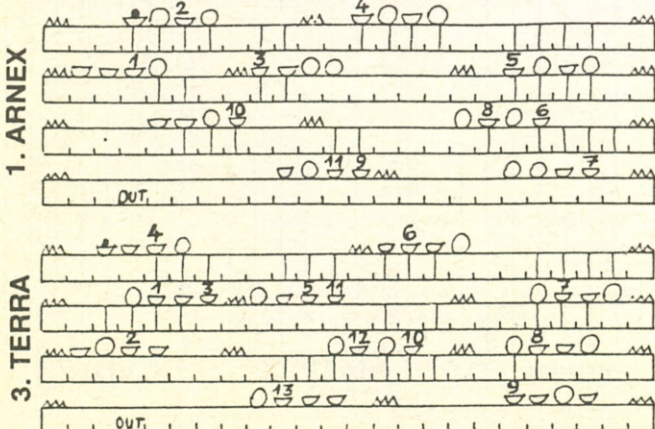 1. ARNEX
e 2 4
1 3 5
10 8 6
11 9 7
OUT.
3. TERRA
e 4 6
1 3 5 11 7
2 12 10 8
13 9
OUT.